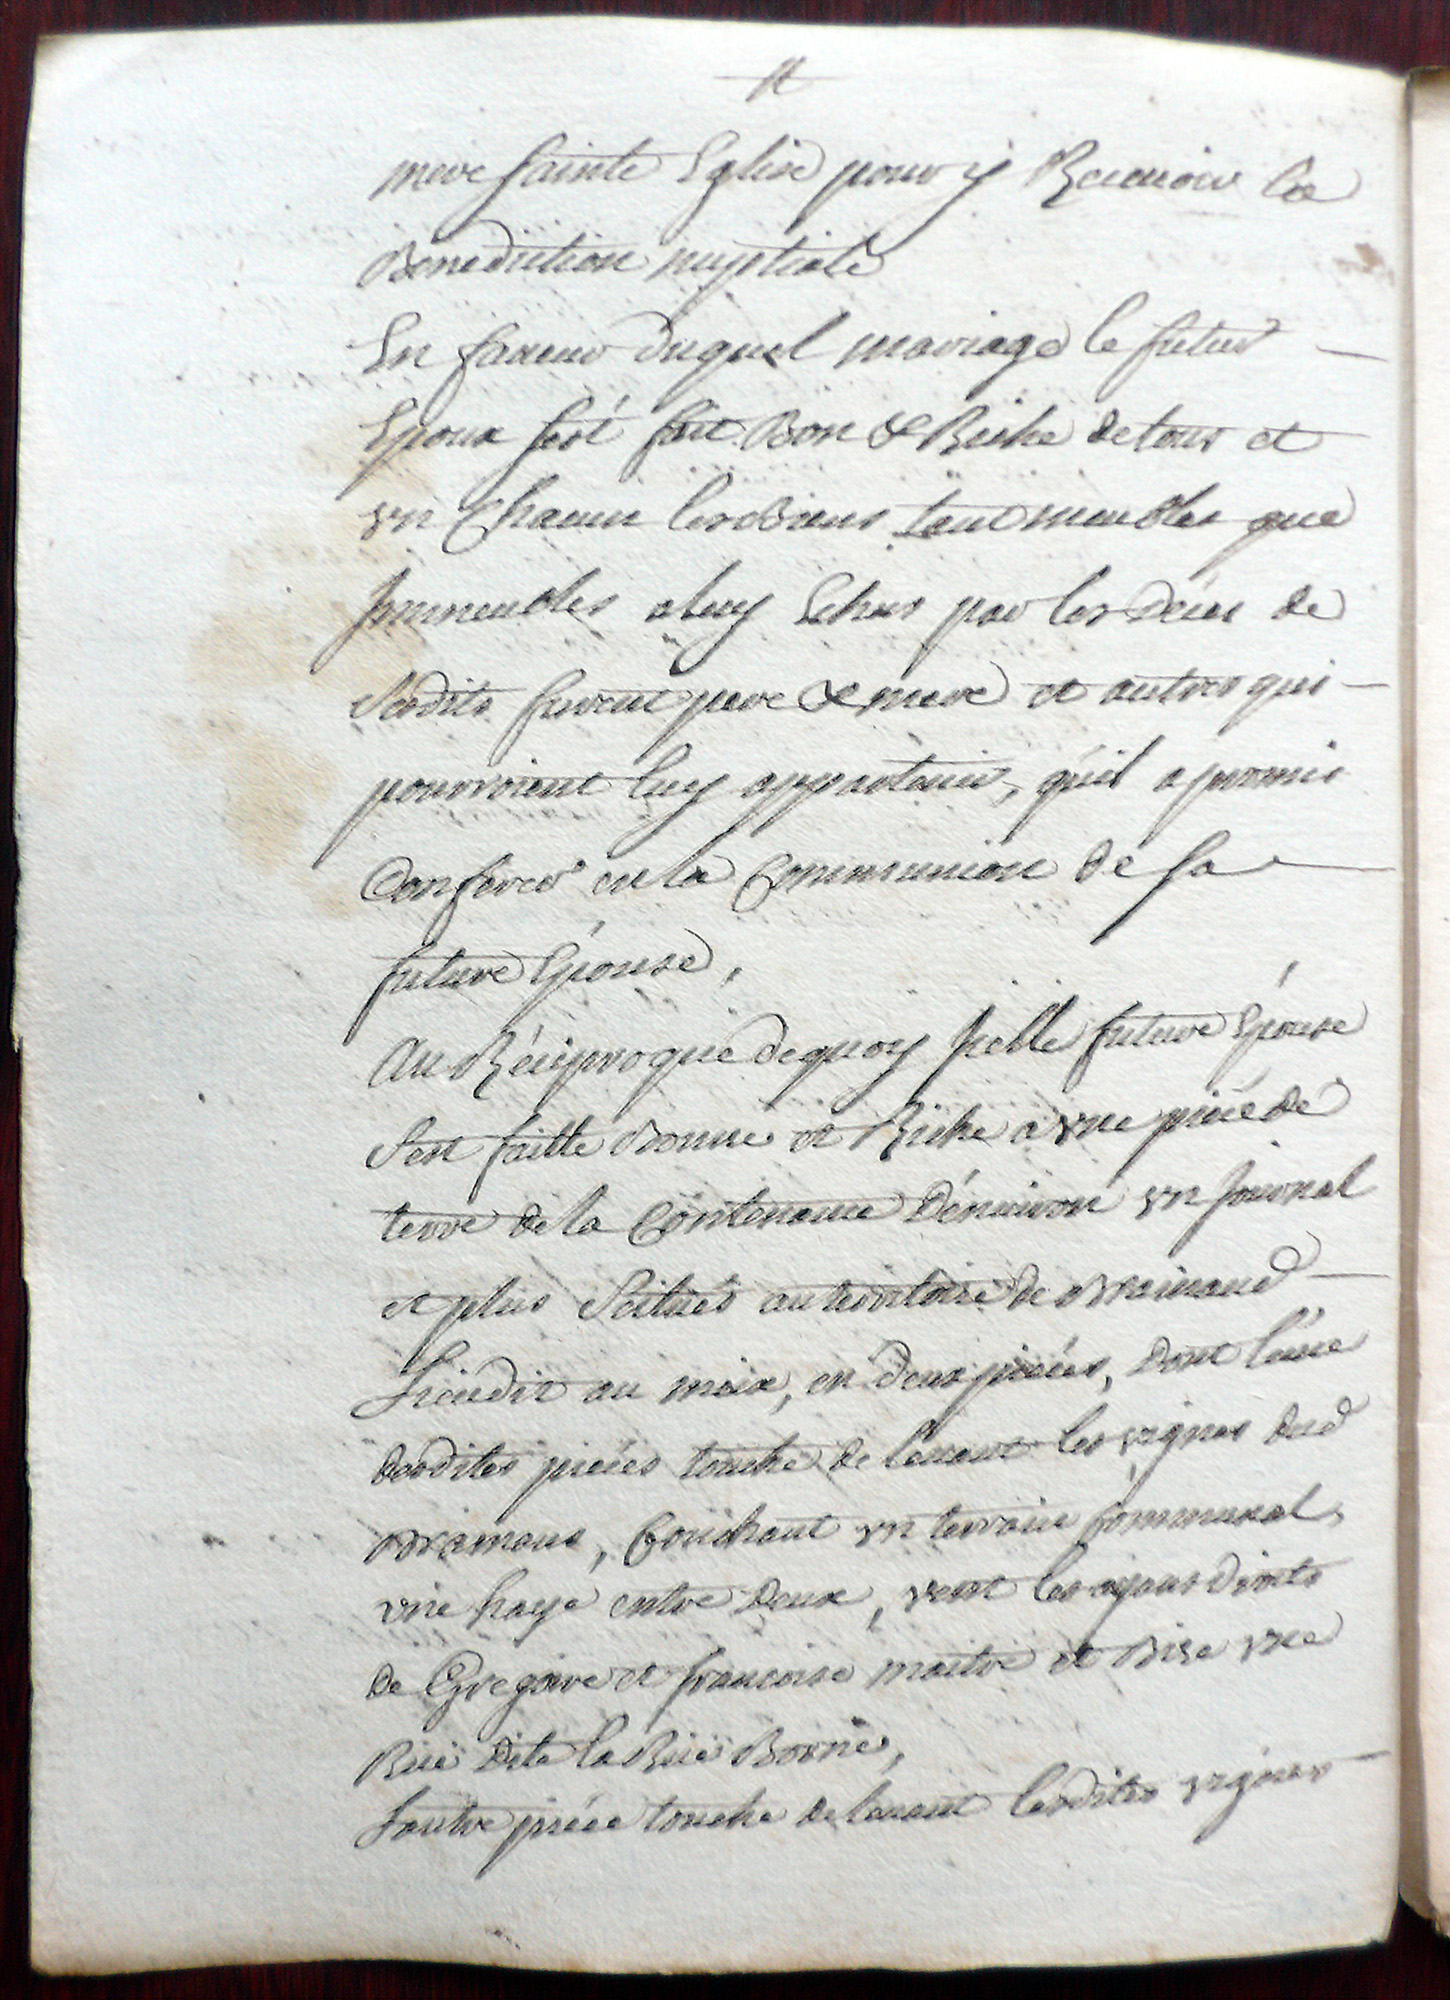 mere sainte Eglise pour y Recevoir La
Benediction nuptiale
En faveur duquel mariage le futur
Epoux s'est fait Bon & Riche de tous et
vn Chacun les Biens tant meubles que
Immeubles a luy Echus par les Déces de
Sesdits furent pere & mere et autres qui
pourroient luy appartenir, qu'il a promis
Conferer en la Communion de sa
future Epouse,
Au Réciproque de quoy Icelle future Epouse
s'est faitte Bonne et Riche a vne piéce de
terre de la Contenance d'énviron vn Journal
et plus Scitués au territoire de Brainans
Lieudit au moix, en deux piéces, dont l'une
desdites piéces touche de levant les vignes dud
Brainans, Couchant vn terrain Communal,
vne haye entre deux, vent les ayans droits
de Gregoire et francoise maitre et Bise vne
Ruë dite la Ruë Borne,
Lautre piéce touche de levant lesdites vignes